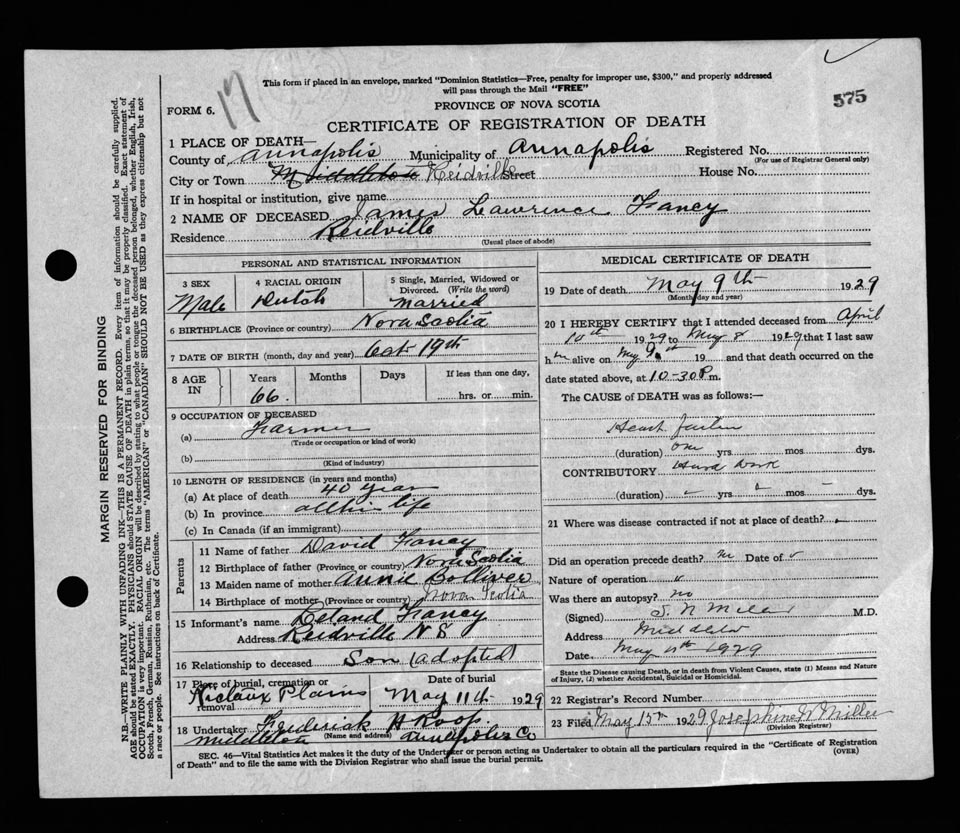 17
575
This form if placed in an envelope, marked "Dominion Statistics—Free, penalty for improper use, $300," and properly addressed
will pass through the Mail "FREE"
FORM 6.
PROVINCE OF NOVA SCOTIA
CERTIFICATE OF REGISTRATION OF DEATH
1 PLACE OF DEATH—
County of Annapolis Municipality of Annapolis Registered No.
(For use of Registrar General only)
City or Town Middleton Reidville Street House No.
If in hospital or institution, give name
2 NAME OF DECEASED James Lawrence Fancy
Residence Reidville
(Usual place of abode)
PERSONAL AND STATISTICAL INFORMATION
3 SEX Male
4 RACIAL ORIGIN Dutch
5 Single, Married, Widowed or Divorced. (Write the word) Married
6 BIRTHPLACE (Province or country) Nova Scotia
7 DATE OF BIRTH (month, day and year) Oct 19th
8 AGE IN Years 66 Months Days If less than one day, hrs. or min.
9 OCCUPATION OF DECEASED
(a) Farmer
(Trade or occupation or kind of work)
(b)
(Kind of industry)
10 LENGTH OF RESIDENCE (in years and months)
(a) At place of death 40 year
(b) In province all his life
(c) In Canada (if an immigrant)
Parents
11 Name of father David Fancy
12 Birthplace of father (Province or country) Nova Scotia
13 Maiden name of mother Annie Bolliver
14 Birthplace of mother (Province or country) Nova Scotia
15 Informant's name Leland Fancy
Address Reidville N S
16 Relationship to deceased Son (adopted)
17 Place of burial, cremation or removal Nictaux Plains
Date of burial May 11th 1929
18 Undertaker Frederick H Roop.
(Name and address)
Middleton Annapolis Co
MEDICAL CERTIFICATE OF DEATH
19 Date of death May 9th 1929
(Month, day and year)
20 I HEREBY CERTIFY that I attended deceased from April
10th 1929 to May 1929 that I last saw
him alive on May 9th 19 and that death occurred on the
date stated above, at 10-30 P m.
The CAUSE of DEATH was as follows:—
Heart failure
(duration) one yrs mos dys.
CONTRIBUTORY Hard work
(duration) yrs mos dys.
21 Where was disease contracted if not at place of death?
Did an operation precede death? no Date of
Nature of operation
Was there an autopsy? no
(Signed) S. N Miller M.D.
Address Middleton
Date May 11th 1929
State the Disease causing Death, or in death from Violent Causes, state (1) Means and Nature
of Injury, (2) whether Accidental, Suicidal or Homicidal.
22 Registrar's Record Number
23 Filed May 15th 1929 Josephine W Miller
(Division Registrar)
(OVER)
SEC. 46—Vital Statistics Act makes it the duty of the Undertaker or person acting as Undertaker to obtain all the particulars required in the "Certificate of Registration
of Death" and to file the same with the Division Registrar who shall issue the burial permit.
MARGIN RESERVED FOR BINDING
N.B.—WRITE PLAINLY WITH UNFADING INK—THIS IS A PERMANENT RECORD. Every item of information should be carefully supplied.
AGE should be stated EXACTLY. PHYSICIANS should STATE CAUSE OF DEATH in plain terms, so that it may be properly classified. Exact statement of
OCCUPATION is very important. RACIAL ORIGIN will be described by stating to what people or tongue the deceased person belonged, whether English, Irish,
Scotch, French, German, Russian, Ruthenian, etc. The terms "AMERICAN" or "CANADIAN" SHOULD NOT BE USED as they express citizenship but not
a race or people. See instructions on back of Certificate.